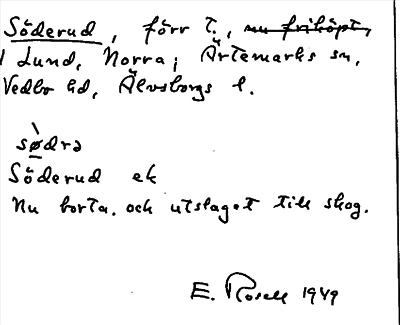 Söderud, förr t., nu friköpt,
i Lund, Norra; Ärtemarks sn,
Vedbo hd, Älvsborgs l.
sø̀drə
Söderud ek
Nu borta. och utslaget till skog.
E. Rosell 1949